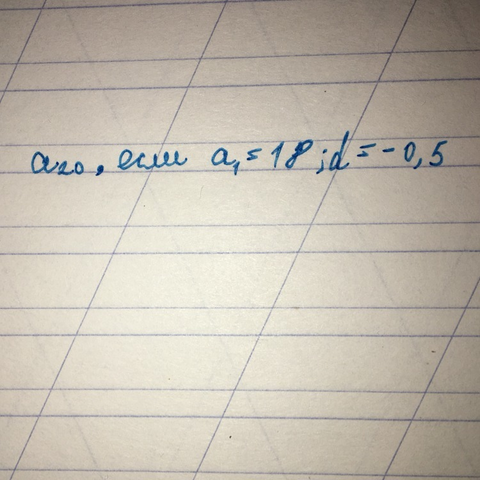 a₂₀, если a₁ = 18; d = -0,5